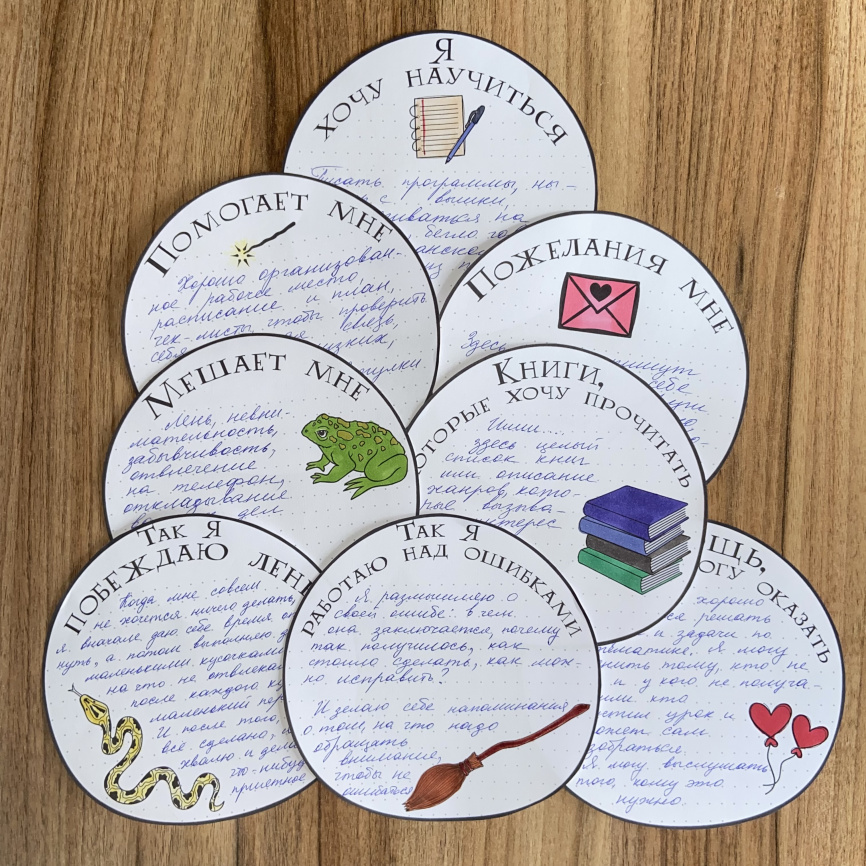 Я
ХОЧУ НАУЧИТЬСЯ
Писать программы, ны-
с вышки,
на
бегло го-
ПОМОГАЕТ МНЕ
Хорошо организован-
ное рабочее место,
расписание и план,
чек-листы, чтобы проверить
ПОЖЕЛАНИЯ МНЕ
Здесь
пишут
себе
МЕШАЕТ МНЕ
Лень, невни-
мательность,
забывчивость,
отвлечение
на телефон,
откладывание
дел.
КНИГИ,
ОТОРЫЕ ХОЧУ ПРОЧИТАТЬ
Ииии....
здесь целый
список книг
или описание
жанров, кото-
рые вызыва-
терес
ТАК Я
ПОБЕЖДАЮ ЛЕНЬ
Когда мне совсем
не хочется ничего делать,
я вначале даю себе время
нуть, а потом выполняю
маленькими кусочками
на что не отвлекаясь
после каждого
маленький пер
И после того,
все сделано,
хвалю и дел
что-нибудь
приятное
ТАК Я
РАБОТАЮ НАД ОШИБКАМИ
Я размышляю о
своей ошибке: в чем
она заключается, почему
так получилось, как
стоило сделать, как мож-
но исправить?
И делаю себе напоминания
о том, на что надо
обращать
внимание,
чтобы не
ошибаться
ЩЬ,
ОГУ ОКАЗАТЬ
хорошо
ся решать
и задачи по
тематике. Я могу
нить тому, кто не
и у кого не получа-
или кто
стил урок и
ожет сам
зобраться.
Я могу выслушать
того, кому это
нужно.